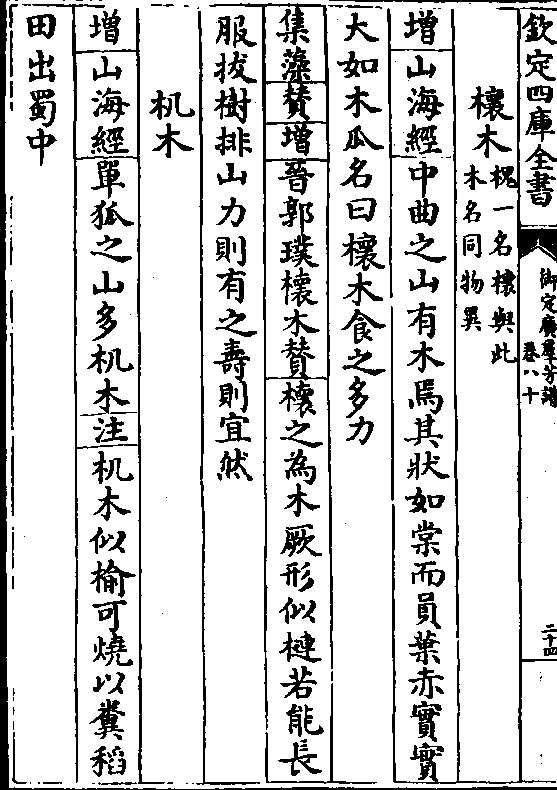 欽定四庫全書
御定廣羣芳譜
卷八十
二十四
櫰木
槐一名櫰與此
木名同物異
增山海經中曲之山有木焉其狀如棠而員葉赤實實
大如木瓜名曰櫰木食之多力
集藻贊增晉郭璞櫰木贊櫰之為木厥形似槤若能長
服拔樹排山力則有之壽則宜然
机木
增山海經單狐之山多机木注机木似榆可燒以糞稻
田出蜀中